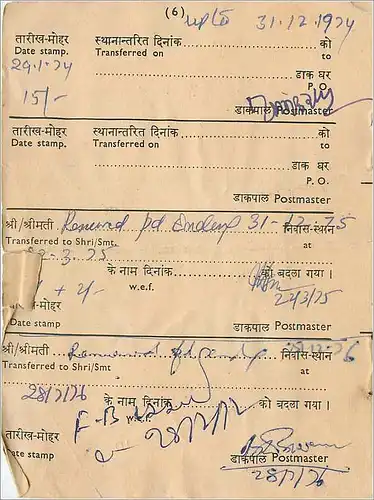 (6) upto 31.12.1974
तारीख-मोहर स्थानान्तरित दिनांक को
Date stamp. Transferred on to
29.1.74
डाक घर
P. O.
15/-
डाकपाल Postmaster
तारीख-मोहर स्थानान्तरित दिनांक को
Date stamp. Transferred on to
डाक घर
P. O.
डाकपाल Postmaster
श्री/श्रीमती Renewed pd Ending 31-12-75 निवास-स्थान
Transferred to Shri/Smt. at
2-3-75
के नाम दिनांक को बदला गया।
w.e.f.
+ 4/-
24/3/75
तारीख-मोहर
Date stamp
डाकपाल Postmaster
श्री/श्रीमती निवास-स्थान
Transferred to Shri/Smt. at
28/1/76
के नाम दिनांक को बदला गया।
w.e.f.
तारीख-मोहर
Date stamp
डाकपाल Postmaster
28/1/76